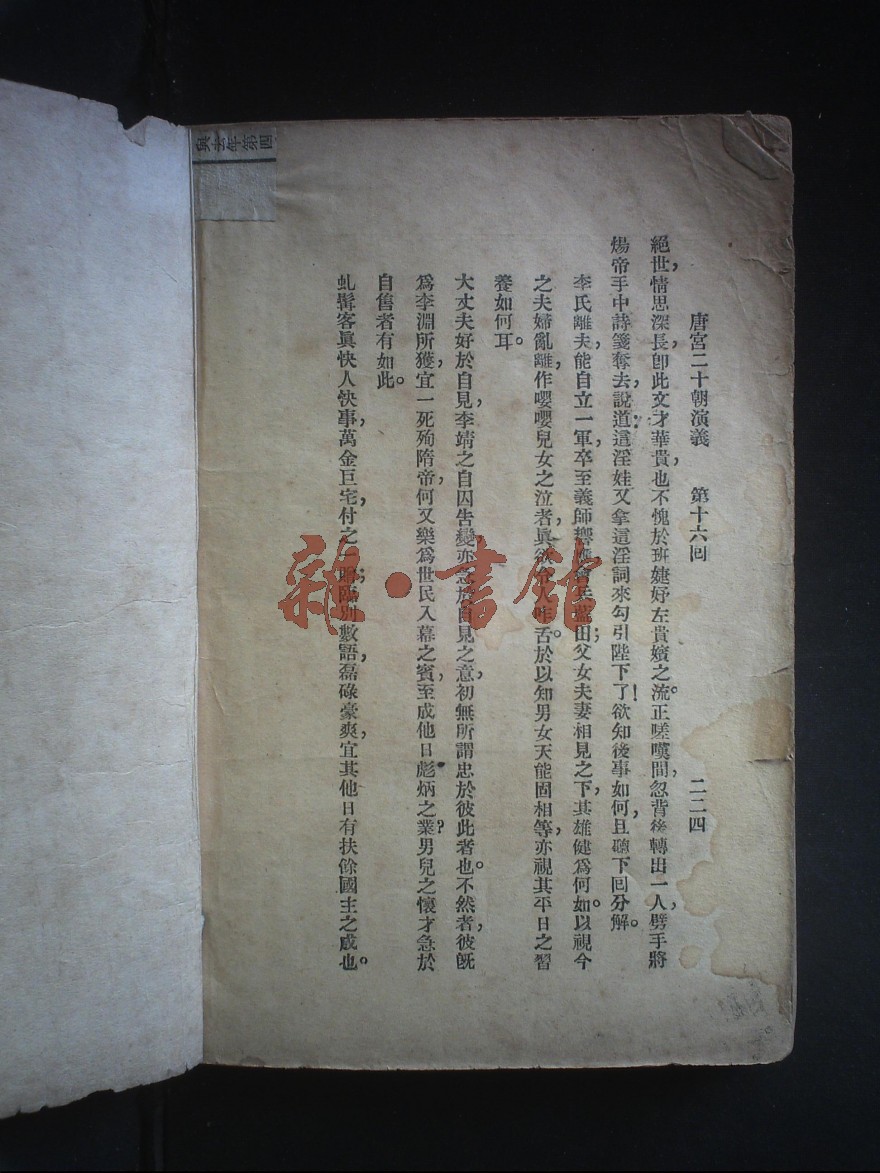 唐宮二十朝演義　第十六回　二二四
絕世,情思深長,卽此文才華貴,也不愧於班婕妤左貴嬪之流。正嗟嘆間,忽背後轉出一人,劈手將
煬帝手中詩箋奪去,說道:這淫娃又拿這淫詞來勾引陛下了!欲知後事如何,且聽下回分解。
李氏離夫,能自立一軍,卒至義師響應,會兵藍田;父女夫妻相見之下,其雄健爲何如。以視今
之夫婦亂離,作嚶嚶兒女之泣者,眞欲令人咋舌。於以知男女天能固相等,亦視其平日之習
養如何耳。
大丈夫好於自見,李靖之自囚告變,亦急於自見之意,初無所謂忠於彼此者也。不然者,彼旣
爲李淵所獲,宜一死殉隋帝,何又樂爲世民入幕之賓,至成他日彪炳之業?男兒之懷才急於
自售者有如此。
虬髯客眞快人快事,萬金巨宅,付之一;臨別數語,磊碌豪爽,宜其他日有扶餘國主之成也。
與去年第四
雜·書館